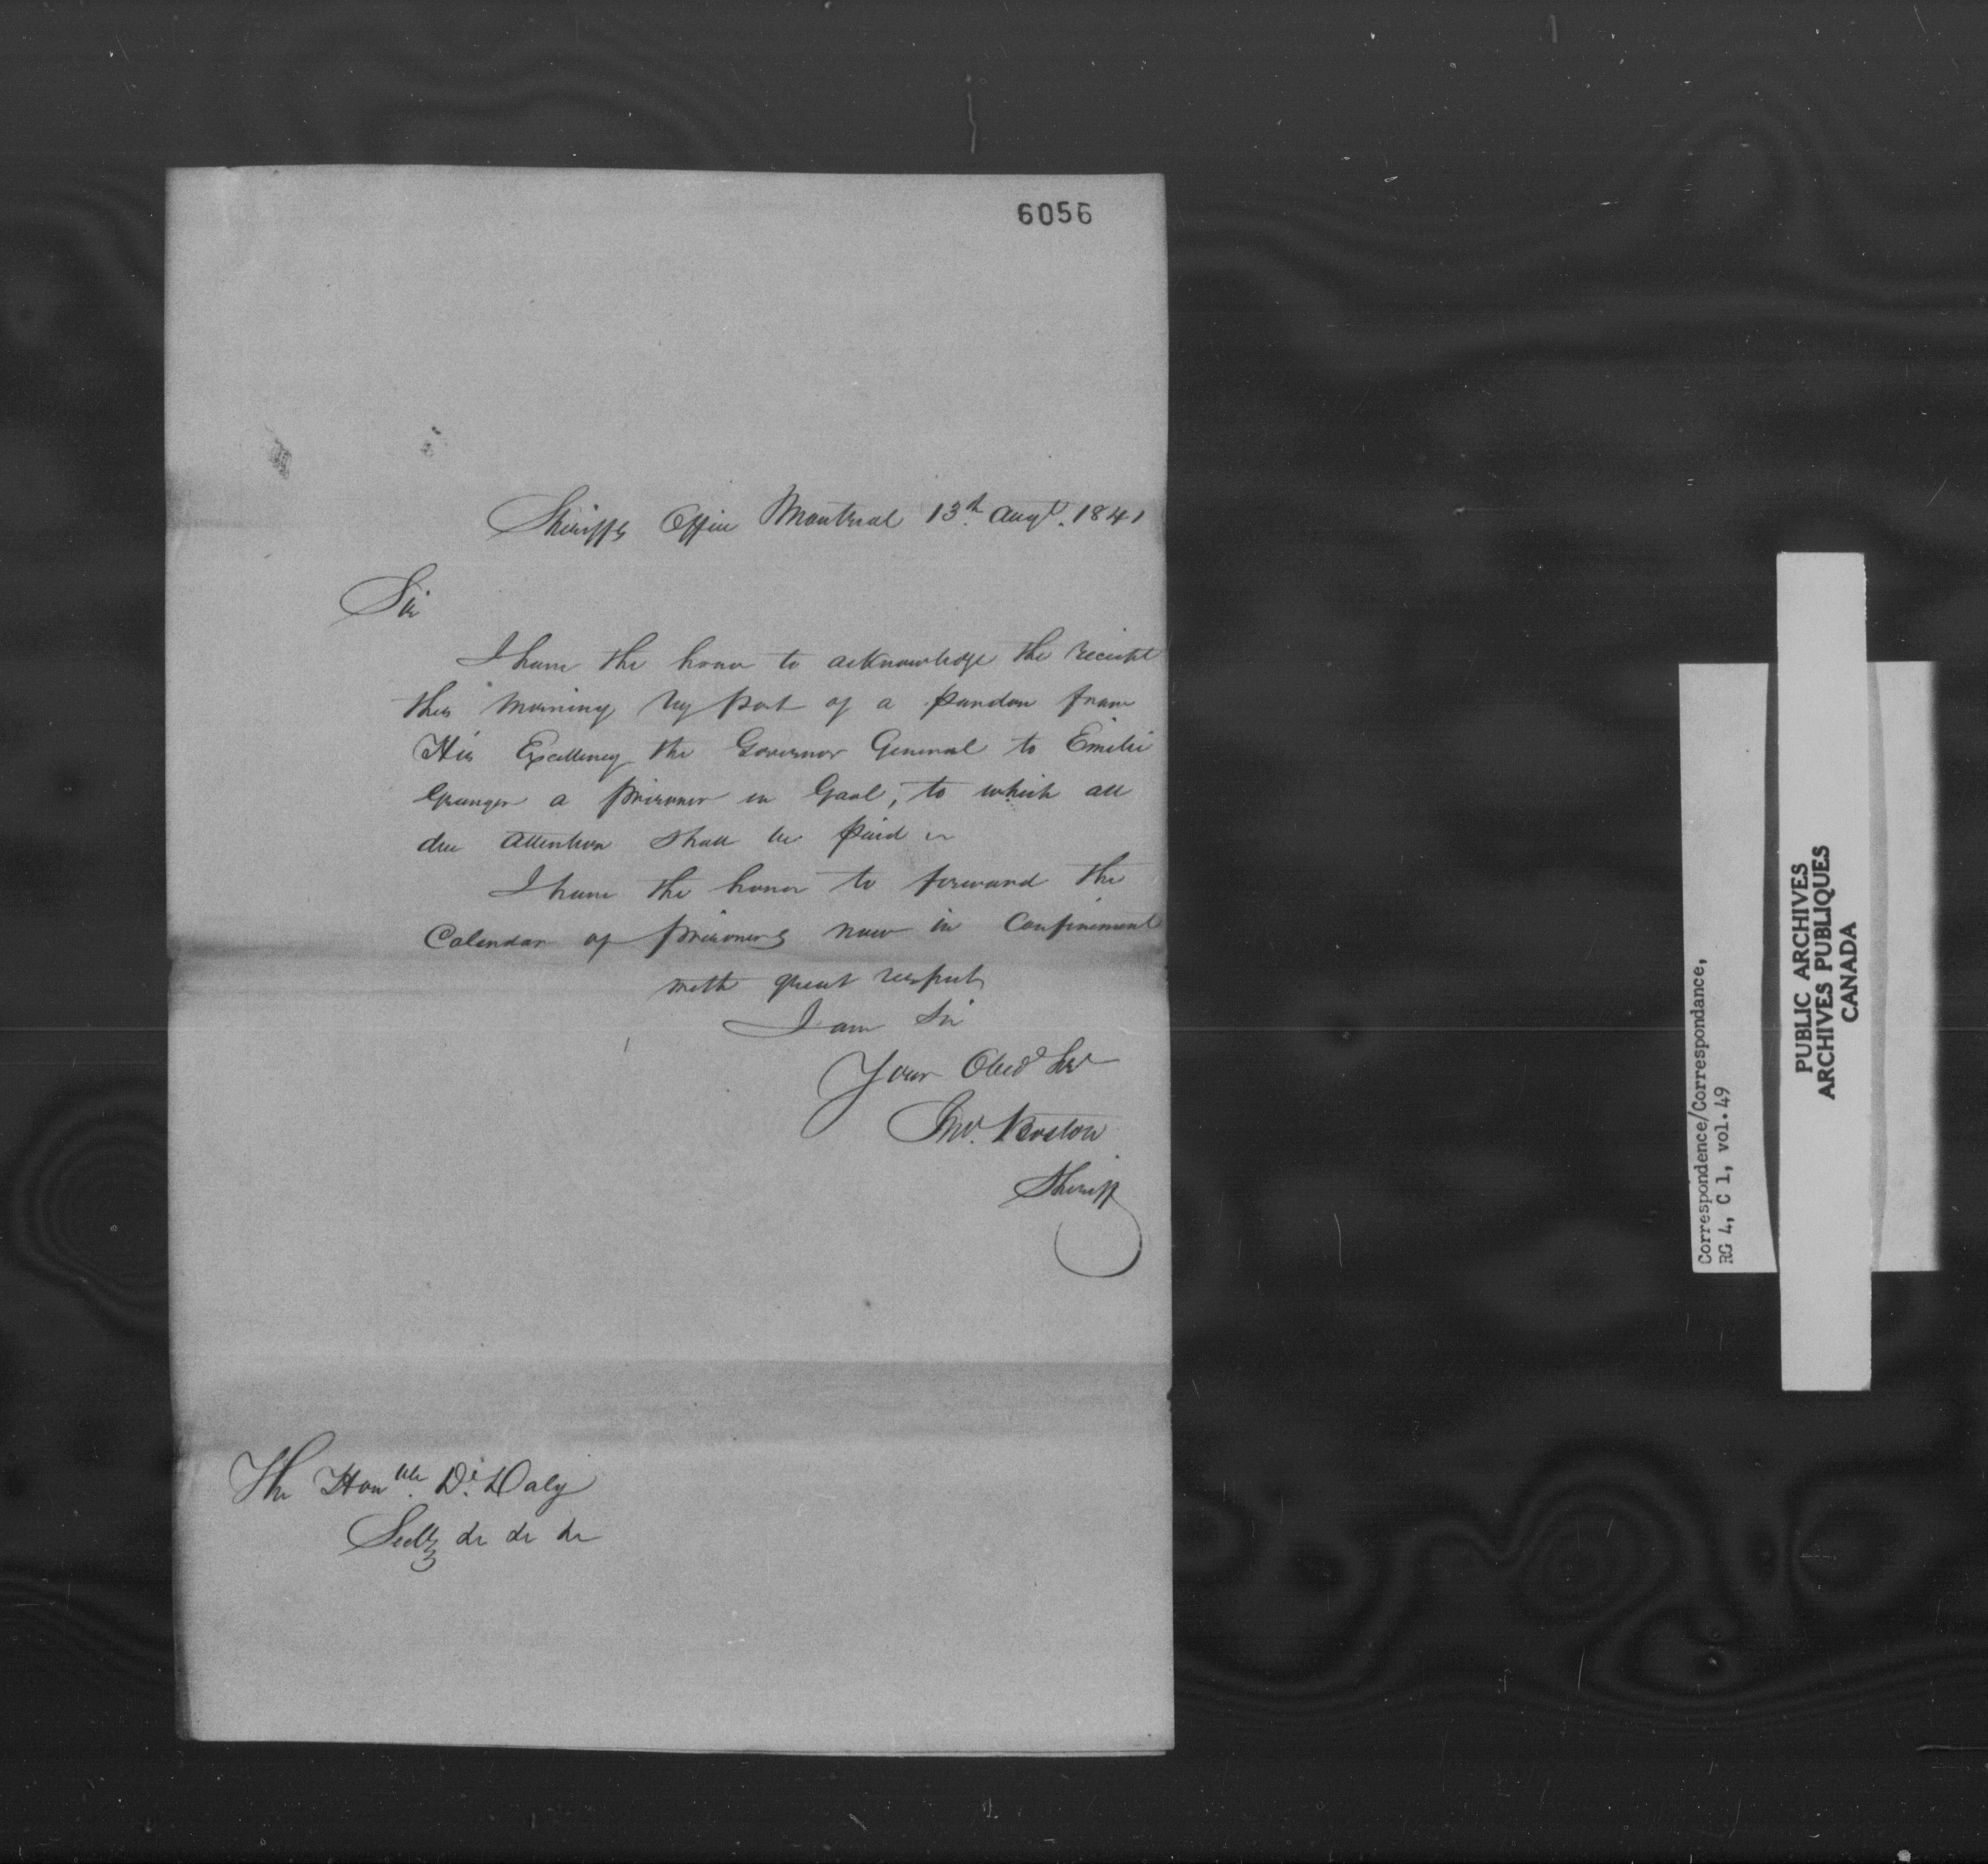 6056
Sheriffs Office Montreal 13th Augt. 1841
Sir
I have the honor to acknowledge the receipt
this morning by post of a pardon from
His Excellency the Governor General to Emilie
Granger a prisoner in Gaol, to which all
due attention shall be paid
I have the honor to forward the
Calendar of prisoners now in Confinement
with great respect
I am Sir
Your Obed Sert
Jno. Boston
Sheriff
The Honble. D. Daly
Secty &c &c &c
Correspondence/Correspondance,
RG 4, C 1, vol. 49
PUBLIC ARCHIVES
ARCHIVES PUBLIQUES
CANADA